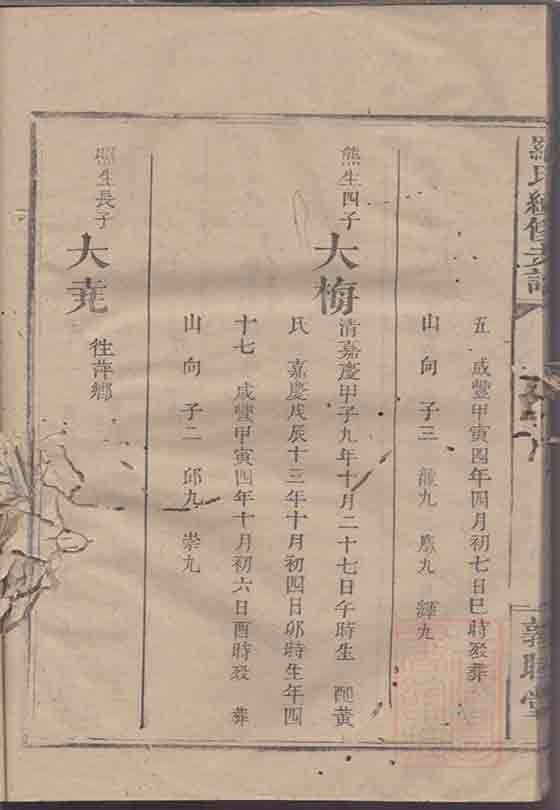 羅氏續修支譜
敦睦堂
五 咸豐甲寅四年四月初七日巳時歿葬
山向子三 龍九 應九 輝九
熊生四子 大梅 清嘉慶甲子九年十月二十七日午時生 配黃
氏 嘉慶戊辰十三年十月初四日卯時生年四
十七 咸豐甲寅四年十月初六日酉時歿 葬
山向子二 邱九 崇九
照生長子 大堯 徃萍鄉